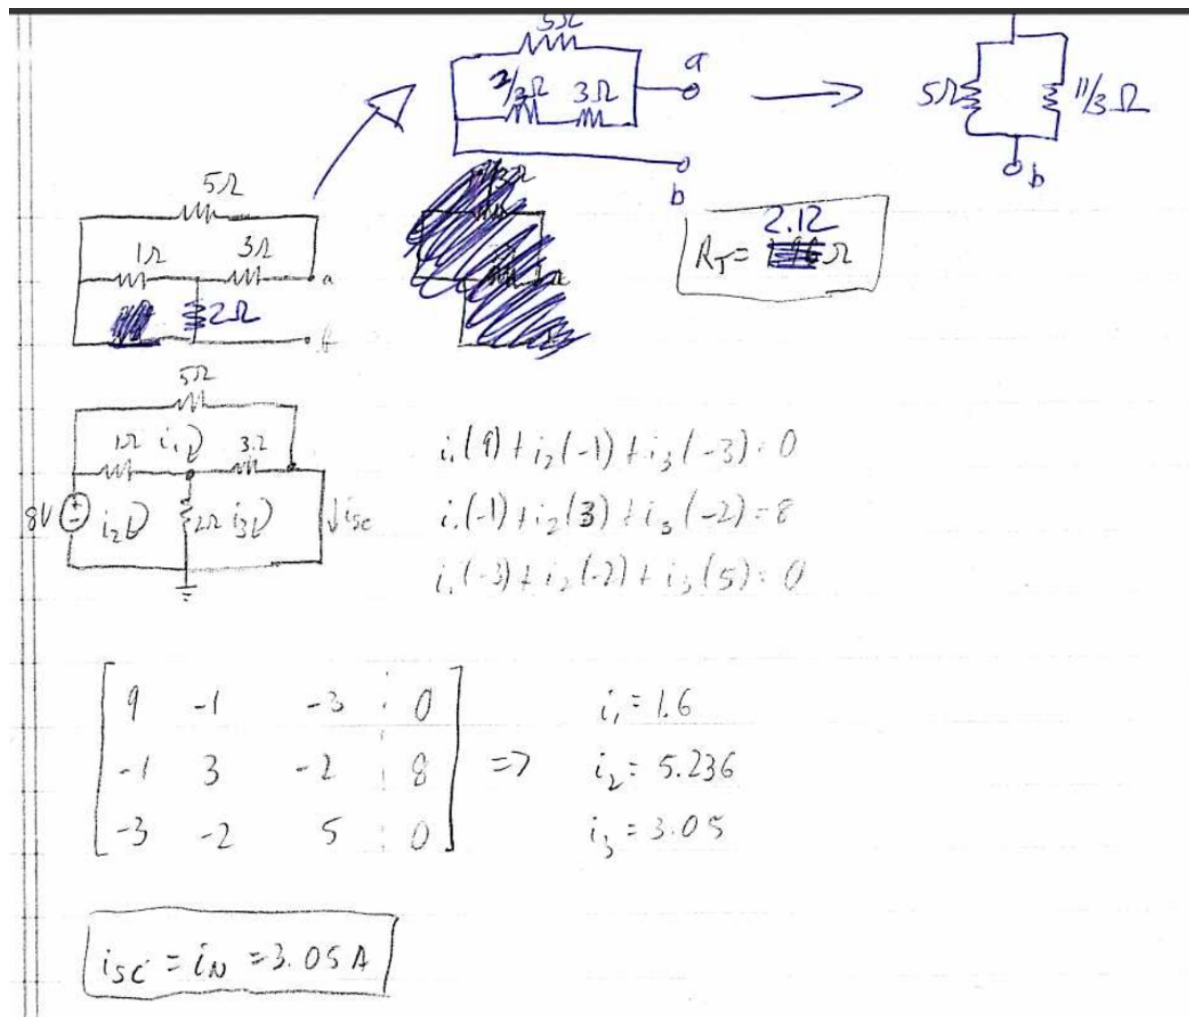 5Ω
2/3Ω 3Ω
a
b
5Ω 11/3 Ω
b
5Ω
1Ω 3Ω
a
2Ω
2.12
R_T = Ω
5Ω
1Ω i₁ 3Ω
8V + - i₂ 2Ω i₃ ↓ i_sc
i₁(9) + i₂(-1) + i₃(-3) = 0
i₁(-1) + i₂(3) + i₃(-2) = 8
i₁(-3) + i₂(-2) + i₃(5) = 0
9 -1 -3 : 0
-1 3 -2 : 8
-3 -2 5 : 0
=>
i₁ = 1.6
i₂ = 5.236
i₃ = 3.05
i_sc = i_N = 3.05 A